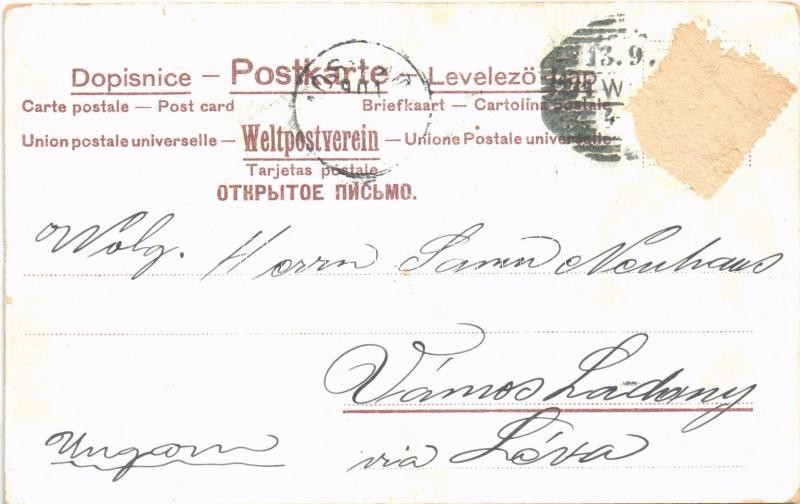 Dopisnice — Postkarte — Levelező Lap
Carte postale — Post card Briefkaart — Cartolina postale
Union postale universelle — Weltpostverein — Unione Postale universelle
Tarjetas postale
ОТКРЫТОЕ ПИСЬМО.
13.9.
W
4
Wolg. Herrn Samu Neuhaus
Vámos Ladany
Ungarn via Léva